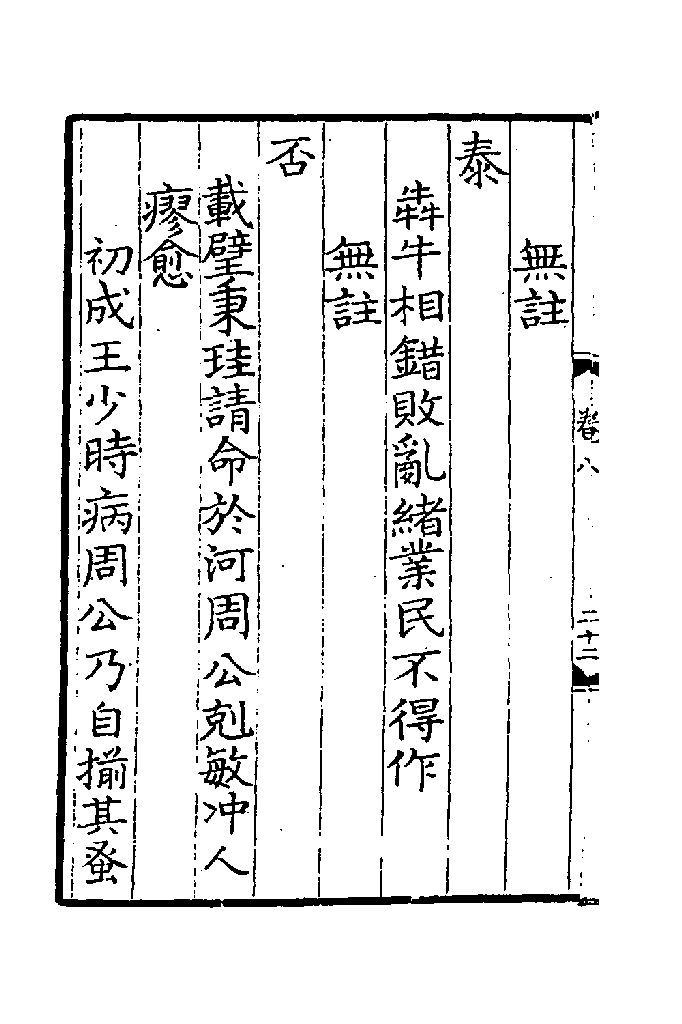 無註
泰
犇牛相錯敗亂緒業民不得作
無註
否
載璧秉珪請命於河周公剋敏冲人
瘳愈
初成王少時病周公乃自揃其蚤
卷八
二十二